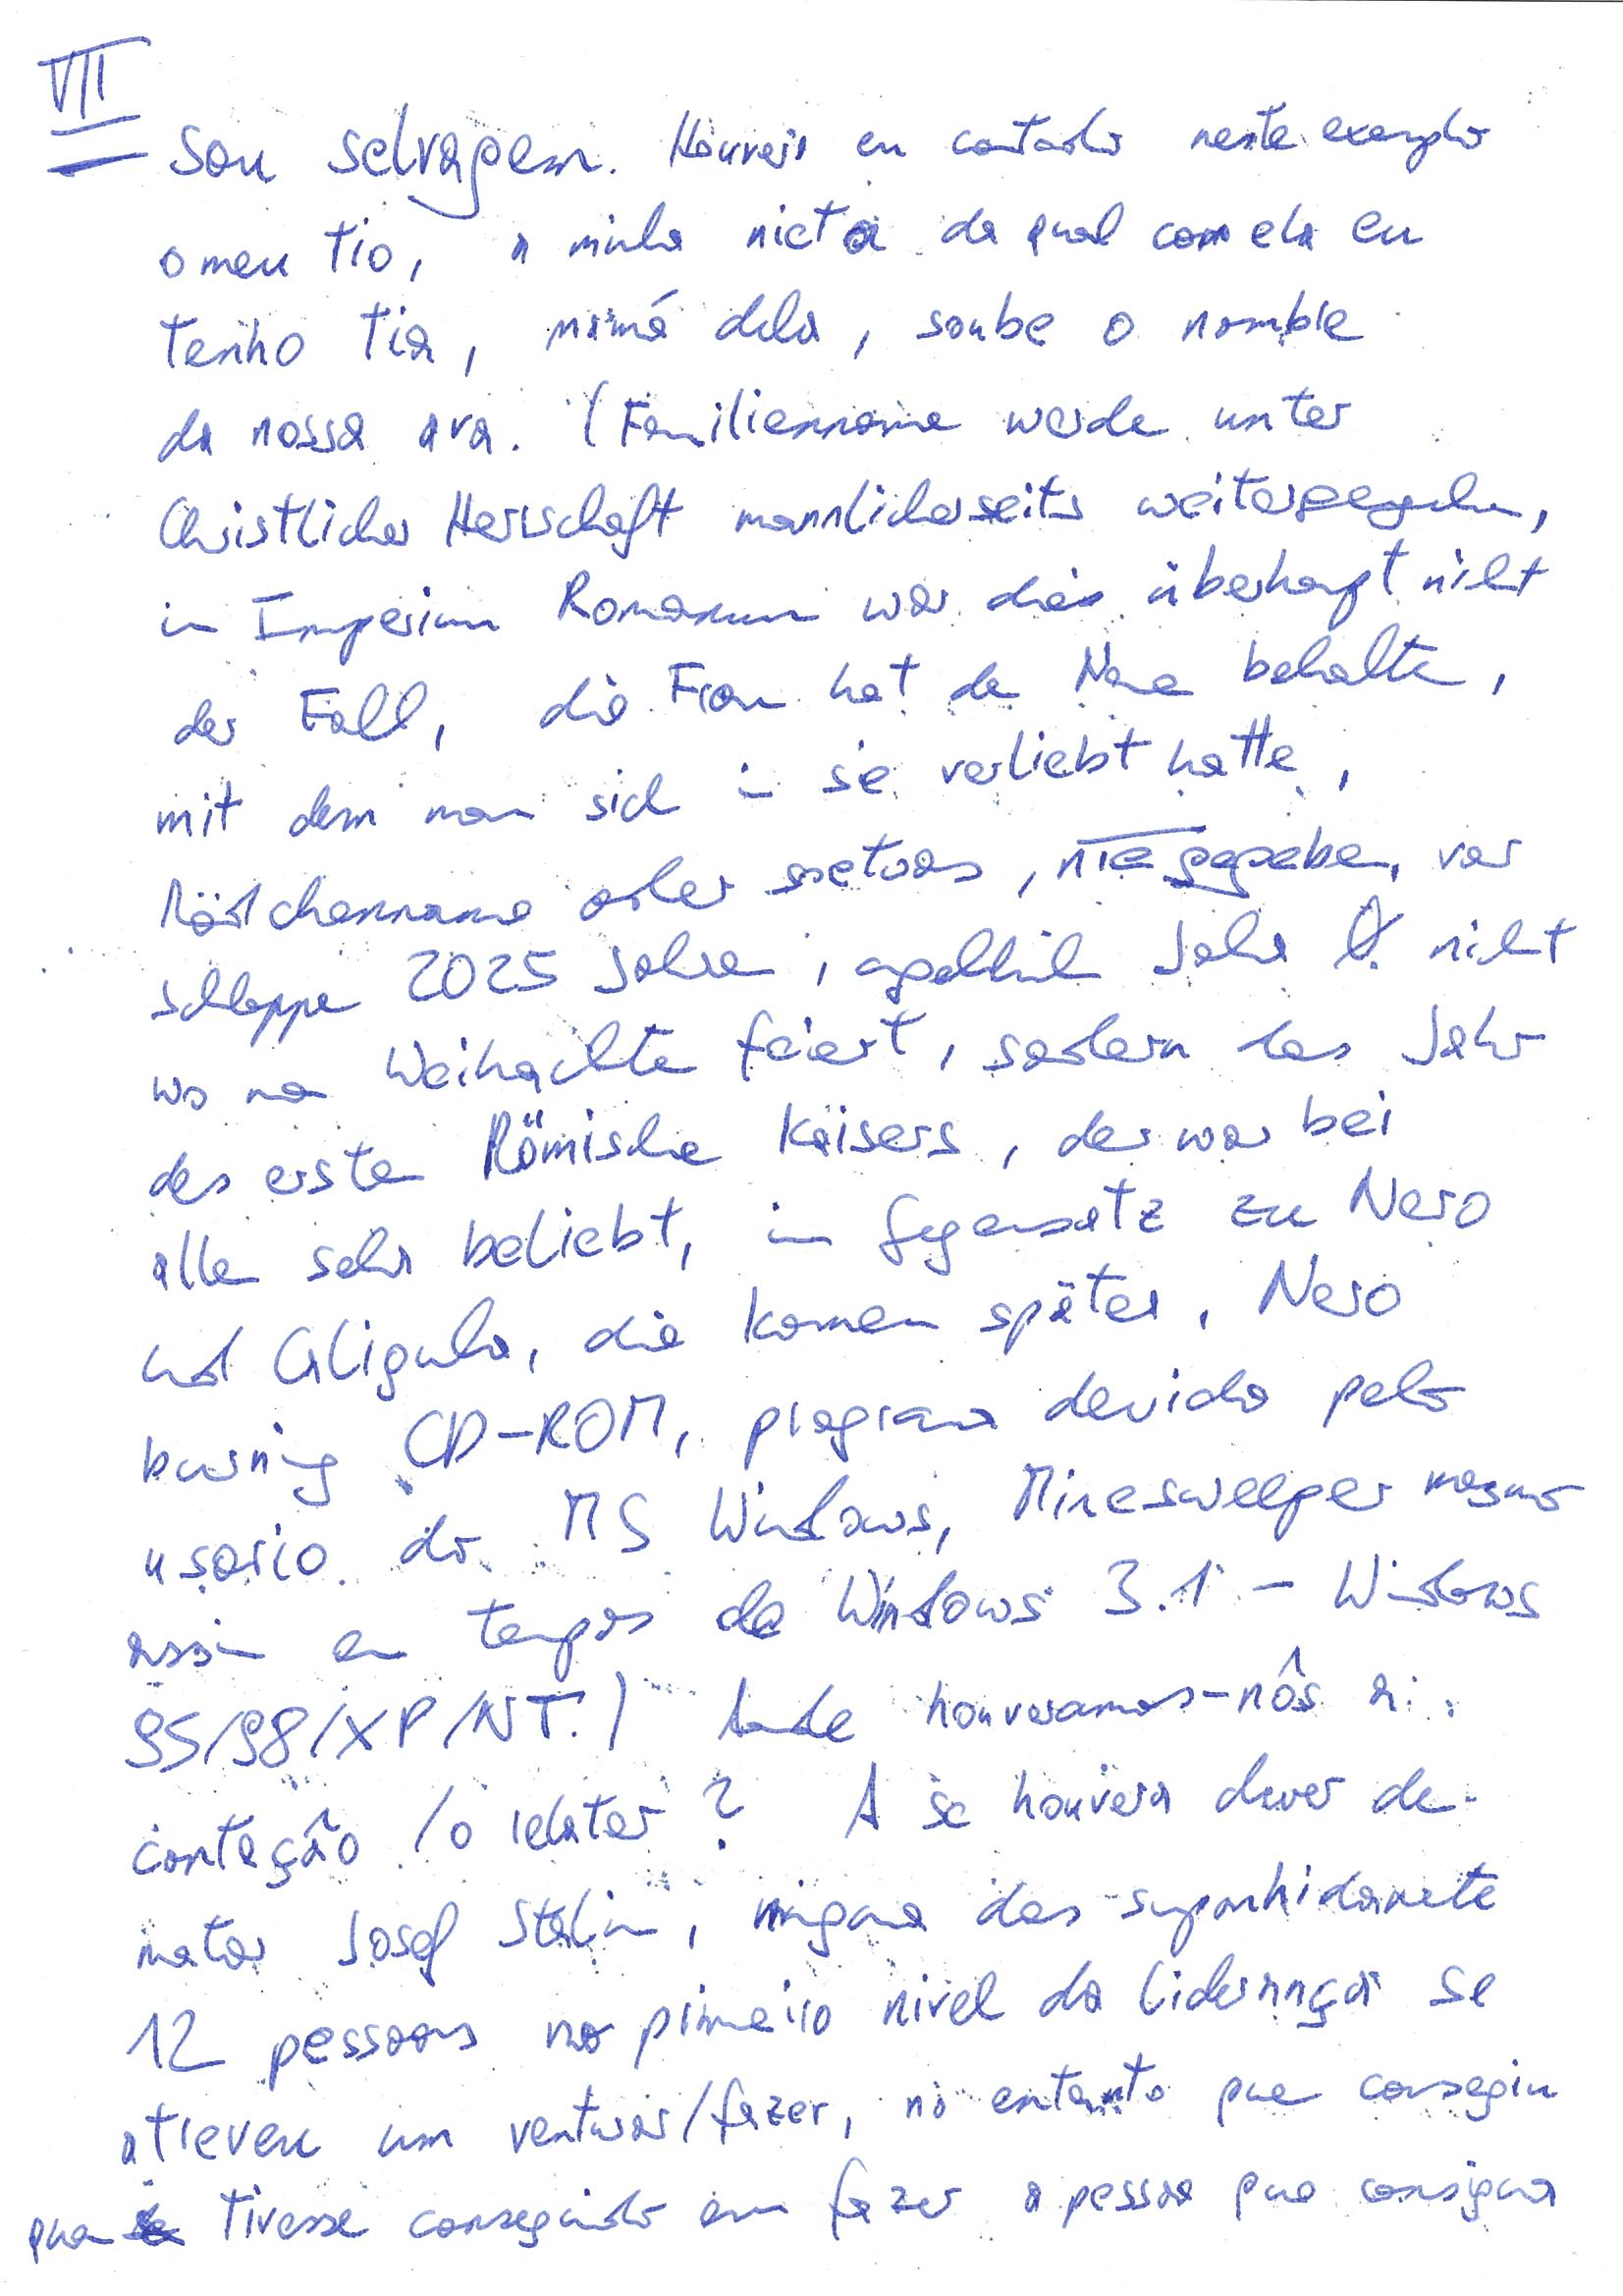 VII
Sou selvagem. Houveis eu contado neste exemplo
o meu tio, a minha nieta da qual com ela eu
tenho tia, mamá dela, soube o nombre
da nossa ava. (Familienname werde unter
Christlicher Herrschaft mannlicherseits weitergegeben,
im Imperium Romanum war dies überhaupt nicht
der Fall, die Frau hat de Name behalte,
mit dem man sich in sie verliebt hatte,
Mädchenname oder soetwas, nie gegeben, vor
schlappe 2025 Jahre, angeblich Jahr 0. nicht
wo man Weihnachte feiert, sondern das Jahr
des erste Römische Kaisers, der war bei
alle sehr beliebt, im Gegensatz zu Nero
und Caligula, die komen später, Nero
burning CD-ROM, programa devido pelo
usario do MS Windows, Minesweeper mesmo
assim em tempos de Windows 3.1 - Windows
95/98/XP/NT.) Aonde houveramos-nôs a
contação /o relatar? A se houvera dever de
matar Josef Stalin, ninguna das suponhidamete
12 pessoas no primeiro nivel da liderança se
atreveu um venturar/fazer, no entanto que consegiu
que tivesse conseguido em fazer a pessoa que consigua